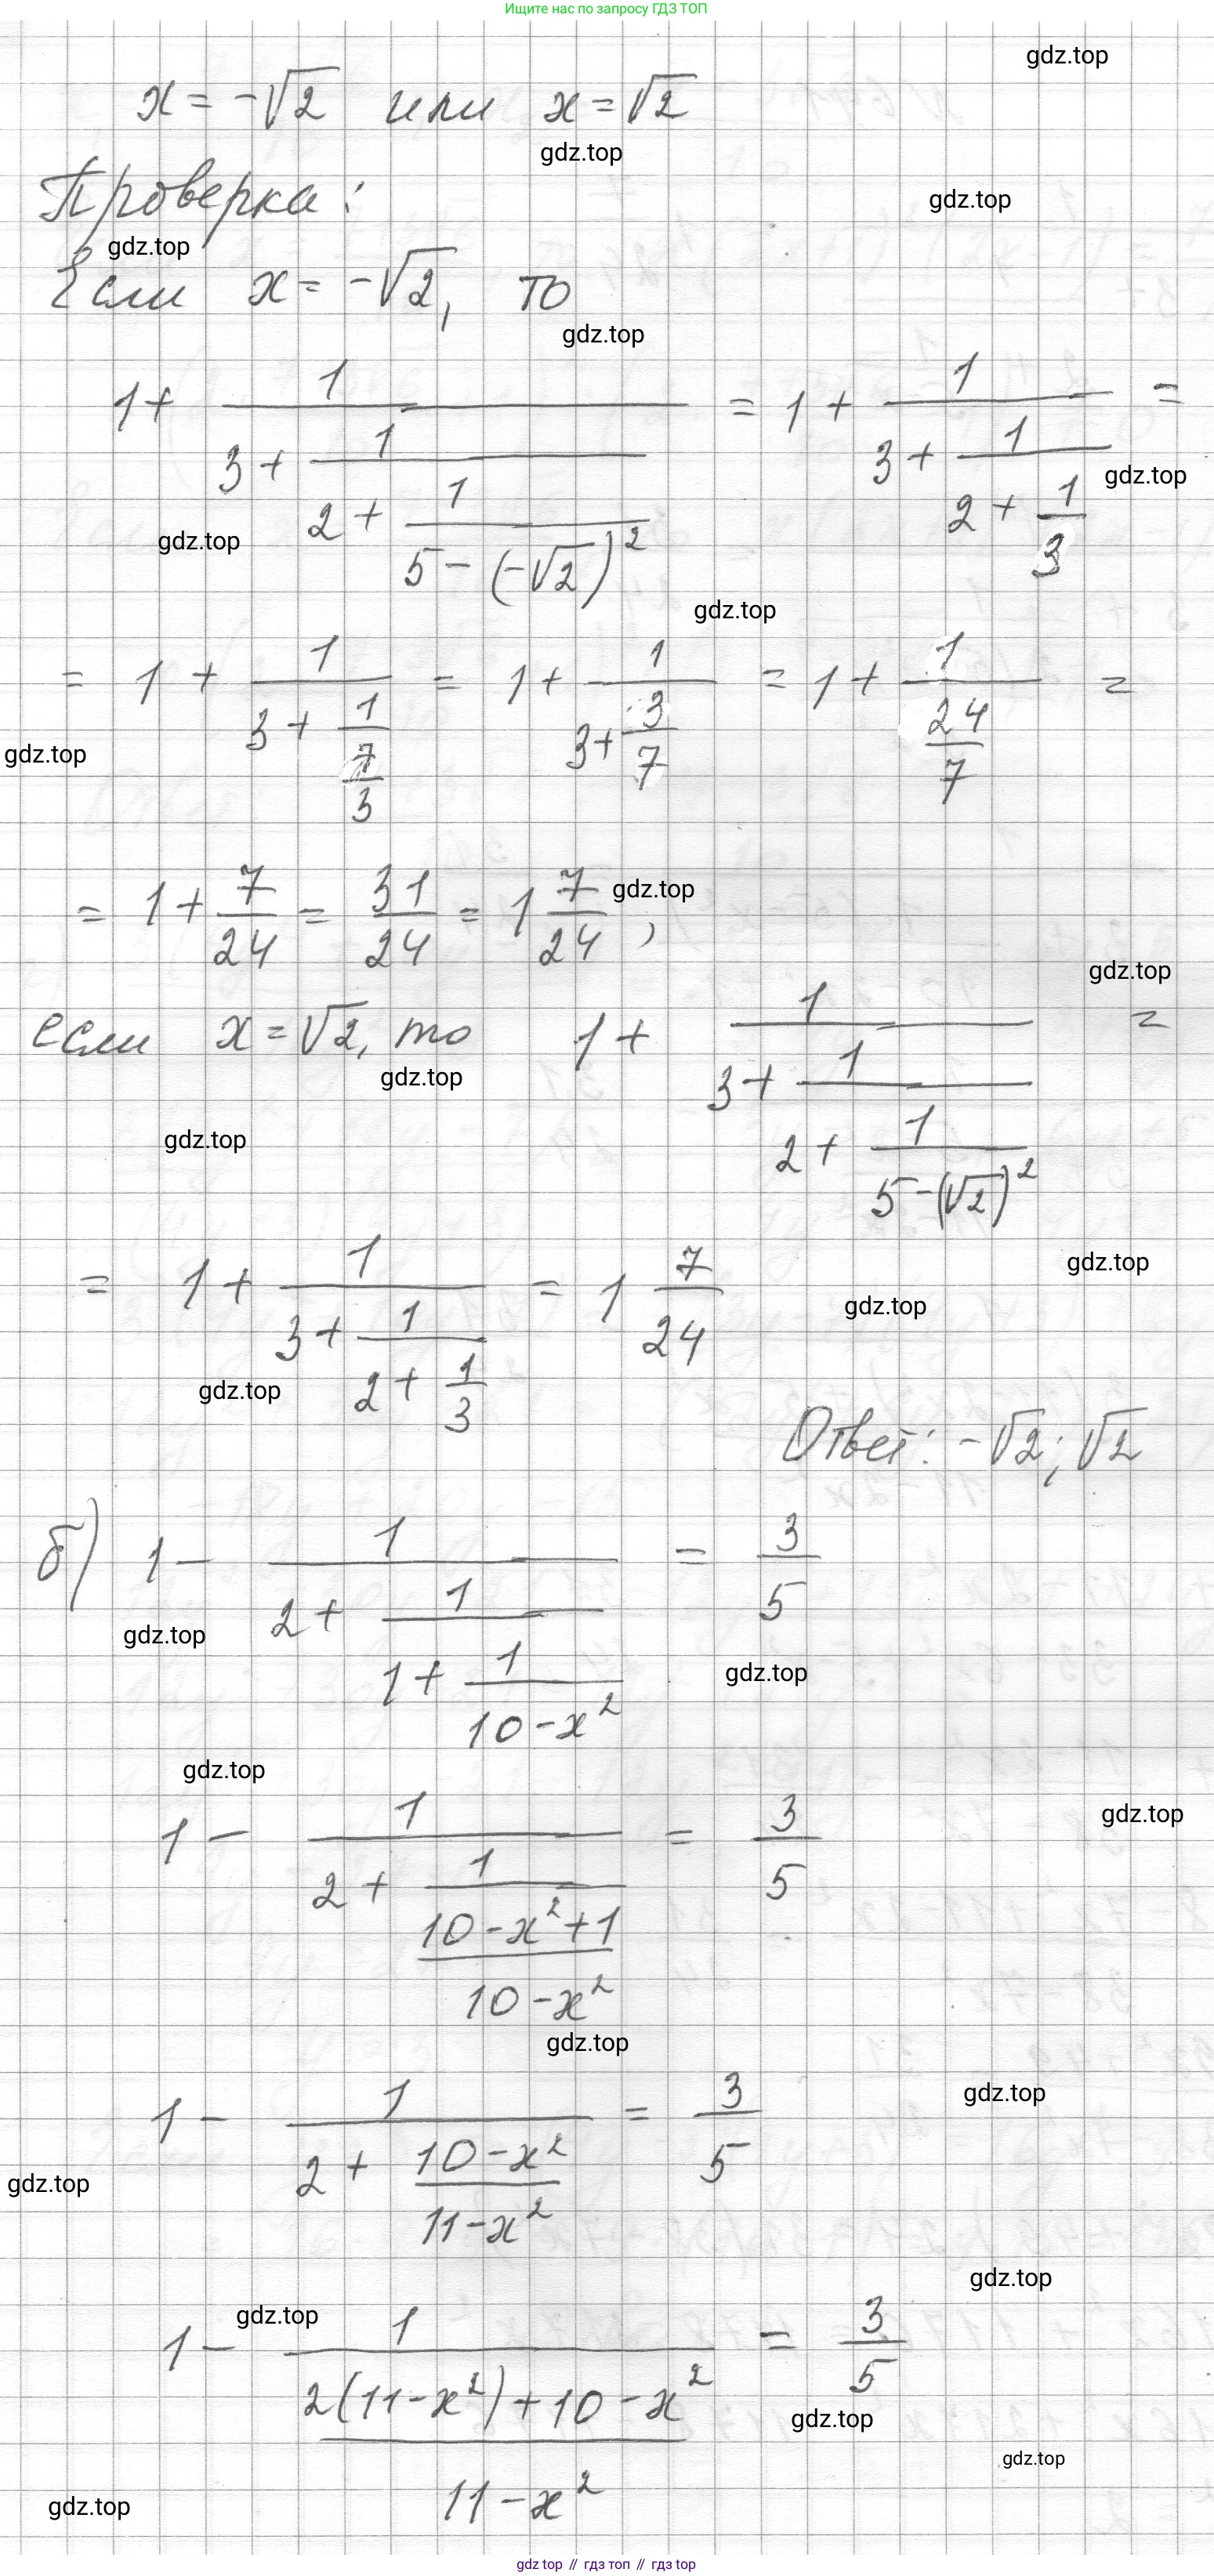 Ищите нас по запросу ГДЗ ТОП
gdz.top
x = -√2 или x = √2
gdz.top
Проверка:
gdz.top
gdz.top
Если x = -√2, то
gdz.top
1 + 1/(3 + 1/(2 + 1/(5 - (-√2)²))) = 1 + 1/(3 + 1/(2 + 1/3)) =
gdz.top
gdz.top
gdz.top
= 1 + 1/(3 + 1/(7/3)) = 1 + 1/(3 + 3/7) = 1 + 1/(24/7) =
gdz.top
= 1 + 7/24 = 31/24 = 1 7/24,
gdz.top
gdz.top
если x = √2, то 1 + 1/(3 + 1/(2 + 1/(5 - (√2)²))) =
gdz.top
gdz.top
= 1 + 1/(3 + 1/(2 + 1/3)) = 1 7/24
gdz.top
gdz.top
gdz.top
Ответ: -√2; √2
б) 1 - 1/(2 + 1/(1 + 1/(10 - x²))) = 3/5
gdz.top
gdz.top
gdz.top
1 - 1/(2 + 1/((10 - x² + 1)/(10 - x²))) = 3/5
gdz.top
gdz.top
1 - 1/(2 + (10 - x²)/(11 - x²)) = 3/5
gdz.top
gdz.top
gdz.top
gdz.top
1 - 1/((2(11 - x²) + 10 - x²)/(11 - x²)) = 3/5
gdz.top
gdz.top
gdz.top
gdz top // гдз топ // гдз top